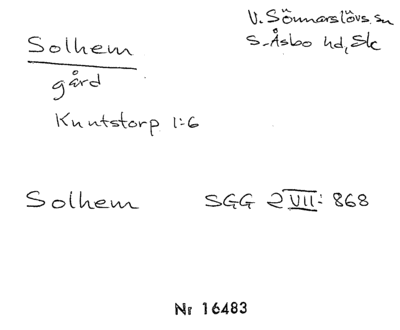 Solhem
V. Sönnarslövs sn
S. Åsbo hd, Sk
gård
Knutstorp 1:6
Solhem SGG 2 VII: 868
Nr 16483